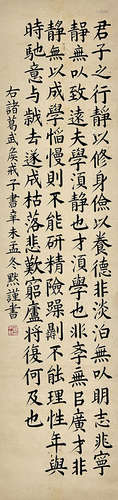 君子之行靜以修身儉以養德非淡泊無以明志非寧
靜無以致遠夫學須靜也才須學也非學無以廣才非
靜無以成學慆慢則不能研精險躁則不能理性年與
時馳意與歲去遂成枯落悲歎窮廬將復何及也
右諸葛武侯戒子書辛未孟冬黙謹書